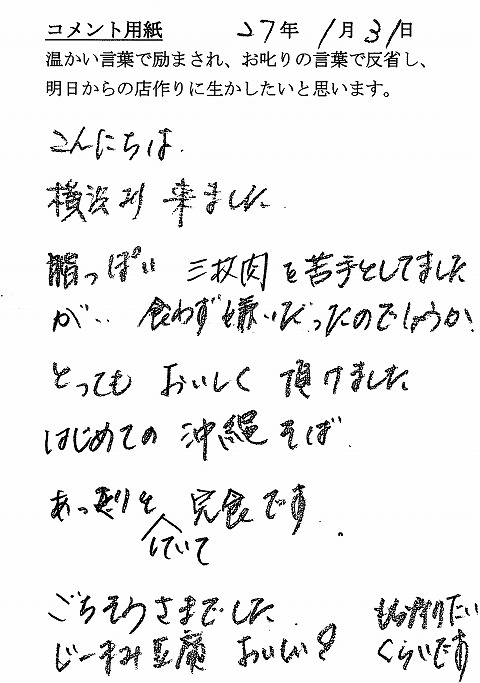 コメント用紙 27年 1月31日
温かい言葉で励まされ、お叱りの言葉で反省し、
明日からの店作りに生かしたいと思います。
こんにちは.
横浜より 来ました.
脂っぽい 三枚肉を苦手としてました
が.. 食わず嫌いだったのでしょうか.
とっても おいしく 頂けました
はじめての 沖縄そば.
あっさりと 完食です.
していて
ごちそうさまでした.
じーまみ豆腐 おいしい!
もち帰りたい
くらいです